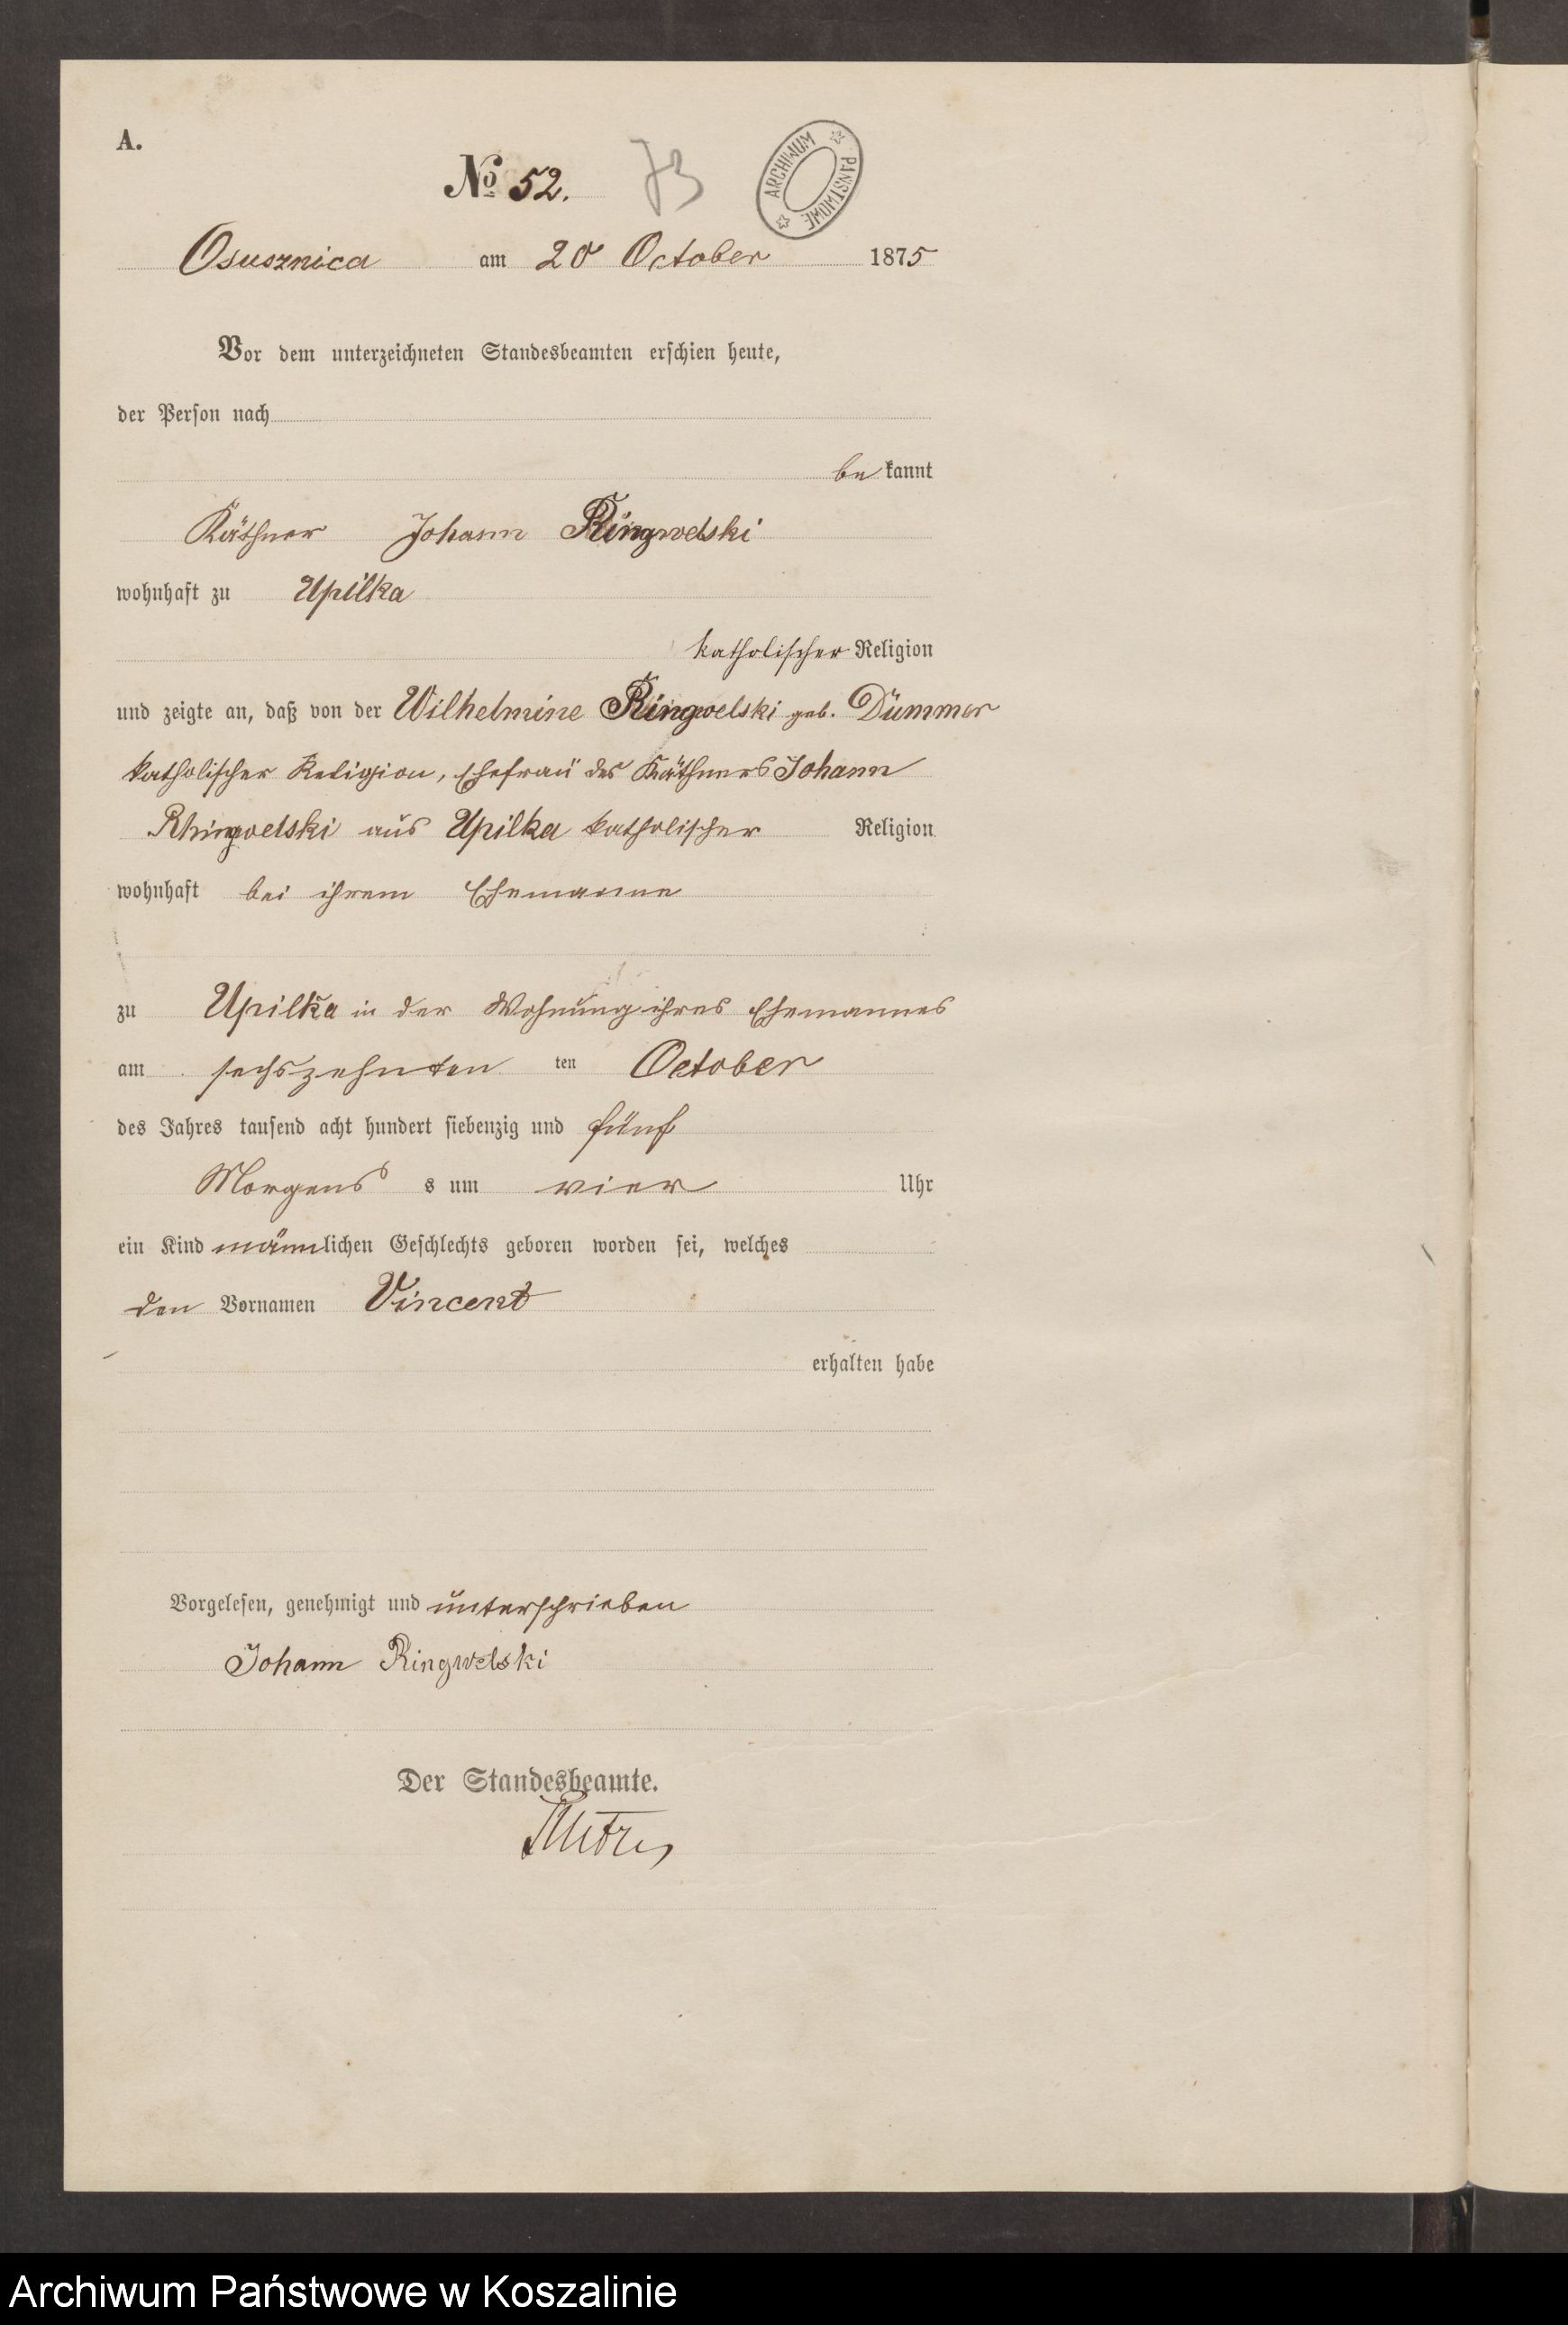 A.
No 52.
73
ARCHIWUM PAŃSTWOWE
Osusznica am 20 October 1875
Vor dem unterzeichneten Standesbeamten erschien heute,
der Person nach
be kannt
Käthner Johann Ringwelski
wohnhaft zu Upilka
katholischer Religion
und zeigte an, daß von der Wilhelmine Ringwelski geb. Dümmer
katholischer Religion, Ehefrau des Käthners Johann
Rhingwelski aus Upilka katholischer Religion
wohnhaft bei ihrem Ehemanne
zu Upilka in der Wohnung ihres Ehemannes
am sechszehnten ten October
des Jahres tausend acht hundert siebenzig und fünf
Morgens s um vier Uhr
ein Kind männlichen Geschlechts geboren worden sei, welches
den Vornamen Vincent
erhalten habe
Vorgelesen, genehmigt und unterschrieben
Johann Ringwelski
Der Standesbeamte.
Archiwum Państwowe w Koszalinie